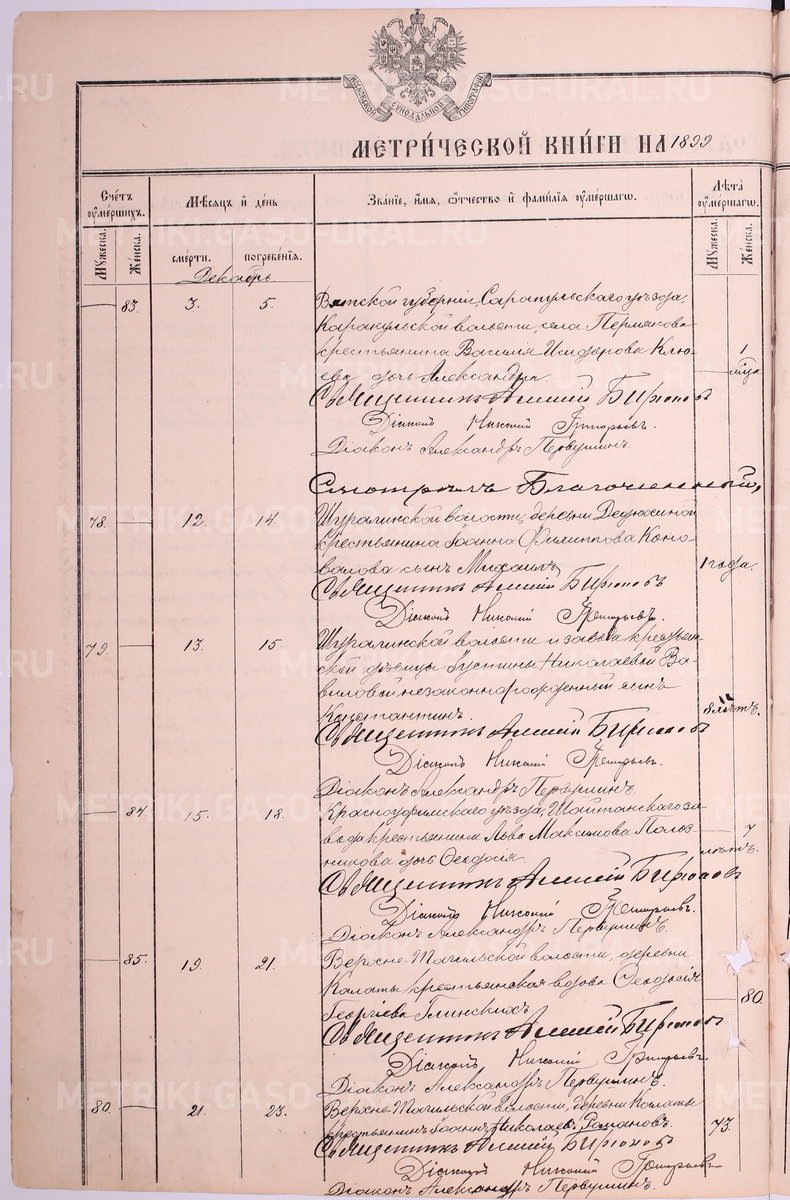 МОСКОВСКОЙ СѴНОДАЛЬНОЙ ТИПОГРАФІИ
МЕТРИ́ЧЕСКОЙ КНИ́ГИ НА 1899
Счéтъ ѹмéршихъ.
Мѣ́сяцъ и́ дéнь
Звáнїе, и́мя, ѻ́тчество и́ фами́лїя ѹмéршагѡ.
Лѣ́та ѹмéршагѡ.
Мꙋ́жеска. Жéнска. смéрти. погребéнїѧ. Мꙋ́жеска. Жéнска.
Декабрь
— 83. 3. 5. Вятской губерніи, Сарапульскаго уѣзда,
Каракульской волости, села Пермякова
крестьянина Василія Исидорова Клю- 1
ева дочь Александра. — мѣсяца
Священникъ Алексій Бирюковъ
Діаконъ Николай Григорьевъ.
Діаконъ Александръ Первушинъ.
Смотрѣлъ Благочинный,
78. — 12. 14. Шуралинской волости, деревни Дедюхиной
крестьянина Іоанна Филиппова Коно-
валова сынъ Михаилъ 1 года.
Священникъ Алексій Бирюковъ
Діаконъ Николай Григорьевъ.
79. — 13. 15. Шуралинской волости и завода крестьян-
ской дѣвицы Іустины Николаевой Ва-
виловой незаконнорожденный сынъ
Константинъ. 8 лѣтъ.
Священникъ Алексій Бирюковъ
Діаконъ Николай Григорьевъ.
Діаконъ Александръ Первушинъ.
— 84. 15. 18. Красноуфимскаго уѣзда, Шайтанскаго за-
вода крестьянина Льва Максимова Полоз- — 7
никова дочь Ѳеодосія. лѣтъ.
Священникъ Алексій Бирюковъ
Діаконъ Николай Григорьевъ.
Діаконъ Александръ Первушинъ.
— 85. 19. 21. Верхне-Тагильской волости, деревни
Калаты крестьянская вдова Ѳеодосія — 80.
Георгіева Глинскихъ
Священникъ Алексій Бирюковъ
Діаконъ Николай Григорьевъ.
Діаконъ Александръ Первушинъ.
80. — 21. 23. Верхне-Тагильской волости, деревни Калаты
крестьянинъ Іоаннъ Николаевъ Романовъ. 73. —
Священникъ Алексій Бирюковъ
Діаконъ Николай Григорьевъ
Діаконъ Александръ Первушинъ.
METRIKI.GASO-URAL.RU